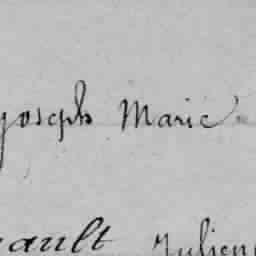 Joseph Marie
ault Julien